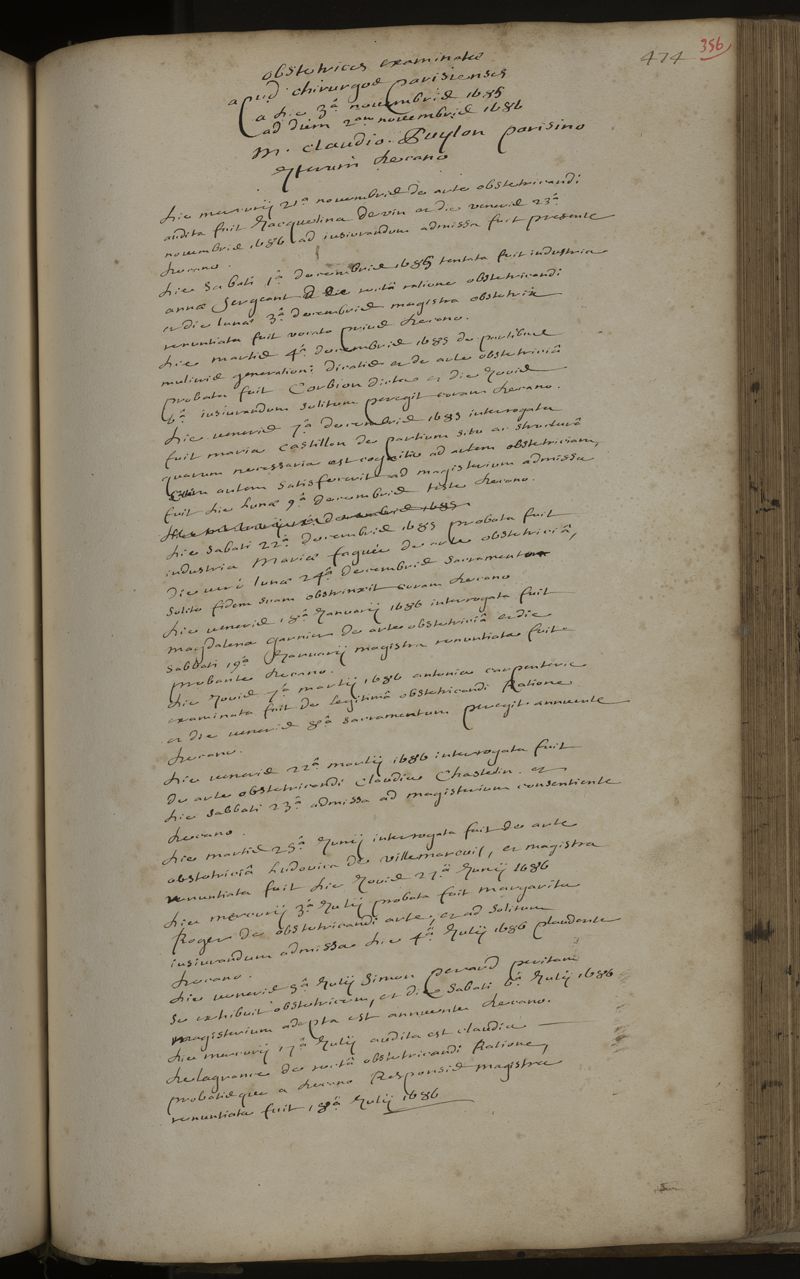 474
356
obstetrices examinatae
apud chirurgos parisienses
a die 3ª novembris 1685
ad diem 2am novembris 1686
M. Claudio. Puylon parisino
Iterum decano
die mercurij 21ª novembris de arte obstetricandi
audita fuit Jacquelina devin et die veneris 23ª
novembris 1686 ad iusiurandum admissa fuit presente
decano
die Sabati 1ª decembris 1685 tentata fuit industria
annae Sergeant de rectâ ratione obstetricandi
et die lunae 3ª decembris magistra obstetrix
renuntiata fuit vocato prius decano.
die martis 4ª decembris 1685 de partibus
muliebris generationi dicatis et de arte obstetriciâ
probata fuit Corbion dicta et die Jovis
6ª iusiurandum solitum peregit coram decano.
die veneris 7ª decembris 1685 interrogata
fuit maria Castillon de partium situ ac structurâ
quarum necessaria est cognitio ad artem obstetriciam,
cum autem satisfecerit ad magisterium admissa
fuit die lunae 9ª decembris teste decano.
die Sabati 22ª decembris 1685 probata fuit
industria Mariae faguée de arte obstetriciâ,
die vero lunae 24ª decembris sacramento
solito fidem suam obstrinxit coram decano
die veneris 18ª Januarij 1686 interrogata fuit
magdalena garnier de arte obstetriciâ et die
Sabbati 19ª Januarij magistra renuntiata fuit
probante decano.
die Jovis 7ª martij 1686 antonia carpentier
examinata fuit de legitimâ obstetricandi Ratione
et die veneris 8ª sacramentum peregit annuente
decano.
die veneris 22ª martij 1686 interrogata fuit
de arte obstetricandi Claudia Chastelin. et
die Sabbati 23ª admissa ad magisterium consentiente
decano.
die martis 25ª Junij interrogata fuit de arte
obstetriciâ Ludovica de villemareuil, et magistra
renuntiata fuit die Jovis 27ª Junij 1686
die mercurij 3ª Julij probata fuit margarita
Roger de obstetricandi arte, et ad solitum
iusiurandum admissa die 4ª Julij 1686 plaudente
decano.
die veneris 5ª Julij Simon peritam
se exhibuit obstetricem, et die Sabati 6ª Julij 1686
magisterium adepta est annuente decano.
die mercurij 17ª Julij audita est claudia
delagrance de rectâ obstetricandi Ratione,
probatisque a decano Responsis magistra
renuntiata fuit 18ª Julij 1686